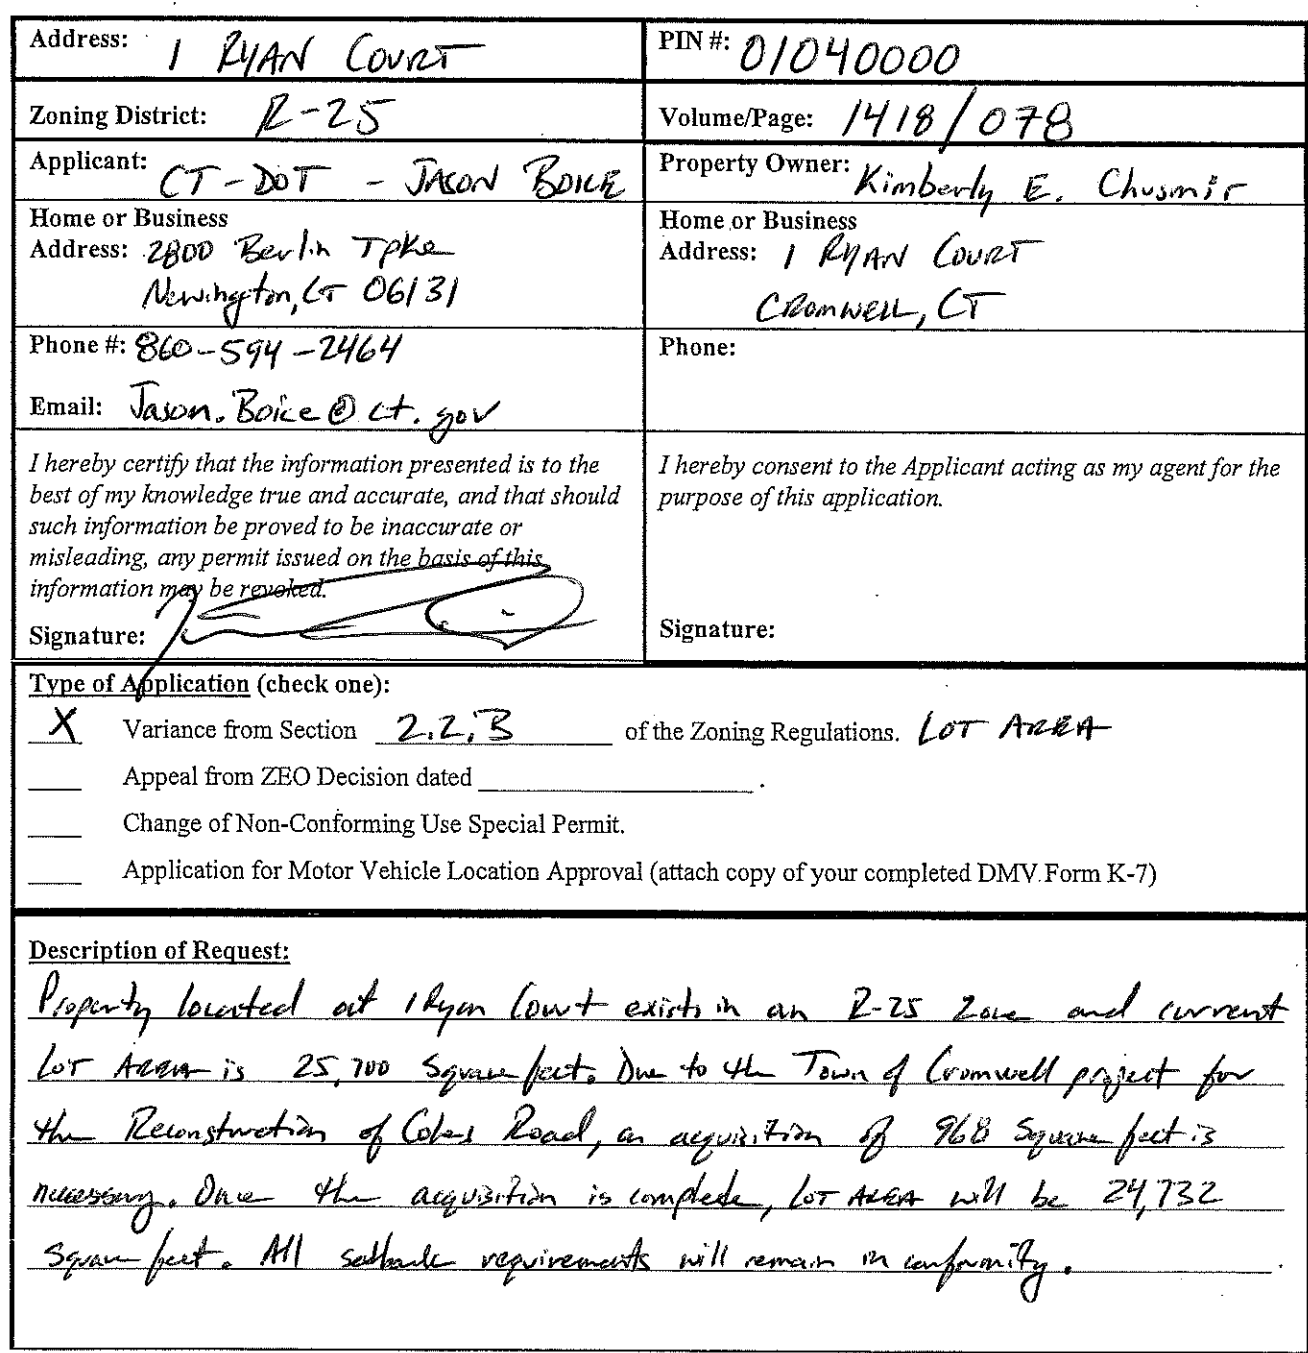 Address: 1 RYAN COURT
PIN #: 01040000
Zoning District: R-25
Volume/Page: 1418/078
Applicant: CT-DOT - JASON BOICE
Property Owner: Kimberly E. Chusmir
Home or Business
Address: 2800 Berlin Tpke
Newington, CT 06131
Home or Business
Address: 1 RYAN COURT
CROMWELL, CT
Phone #: 860-594-2464
Email: Jason.Boice@ct.gov
Phone:
I hereby certify that the information presented is to the
best of my knowledge true and accurate, and that should
such information be proved to be inaccurate or
misleading, any permit issued on the basis of this
information may be revoked.
Signature:
I hereby consent to the Applicant acting as my agent for the
purpose of this application.
Signature:
Type of Application (check one):
X Variance from Section 2.2.B of the Zoning Regulations. LOT AREA
Appeal from ZEO Decision dated .
Change of Non-Conforming Use Special Permit.
Application for Motor Vehicle Location Approval (attach copy of your completed DMV Form K-7)
Description of Request:
Property located at 1 Ryan Court exists in an R-25 Zone and current
LOT AREA is 25,700 Square feet. Due to the Town of Cromwell project for
the Reconstruction of Coles Road, an acquisition of 968 Square feet is
necessary. Once the acquisition is complete, LOT AREA will be 24,732
Square feet. All setback requirements will remain in conformity.